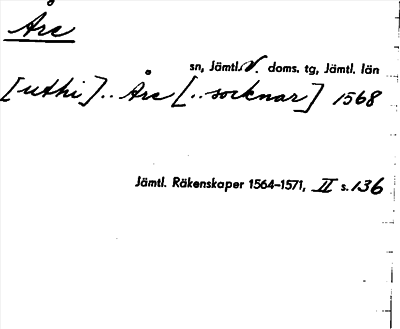 Åre
sn, Jämtl. V. doms. tg, Jämtl. län
[uthi].. Åre [..socknar] 1568
Jämtl. Räkenskaper 1564-1571, II s. 136